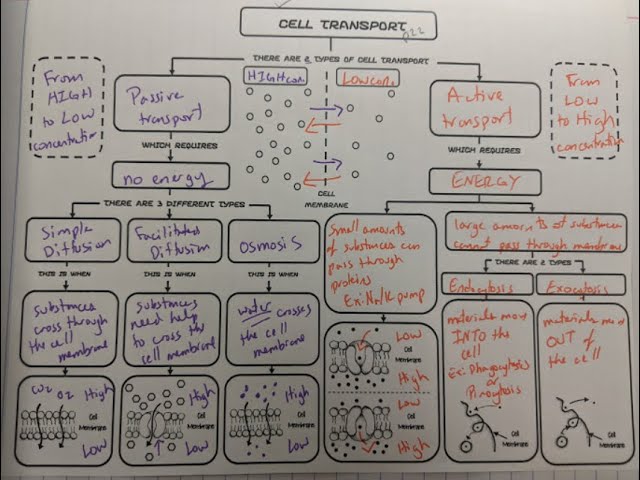 CELL TRANSPORT
THERE ARE 2 TYPES OF CELL TRANSPORT
From
HIGH
to Low
concentration
Passive
transport
HIGH con.
LOW con.
Active
transport
From
LOW
to High
concentration
WHICH REQUIRES
WHICH REQUIRES
no energy
CELL
MEMBRANE
ENERGY
THERE ARE 3 DIFFERENT TYPES
Simple
Diffusion
Facilitated
Diffusion
OSMOSIS
Small amounts
of substances can
pass through
proteins
Ex: Na/K pump
large amounts of substances
cannot pass through membrane
THERE ARE 2 TYPES
THIS IS WHEN
THIS IS WHEN
THIS IS WHEN
Endocytosis
Exocytosis
substances
cross through
the cell
membrane
substances
need help
to cross the
cell membrane
water crosses
the cell
membrane
materials move
INTO the
cell
Ex: Phagocytosis
or
Pinocytosis
materials move
OUT of
the cell
CO2 O2 High
Cell
Membrane
Low
High
Cell
Membrane
Low
High
Cell
Membrane
Low
Low
Cell
Membrane
High
Low
Cell
Membrane
High
Cell
Membrane
Cell
Membrane